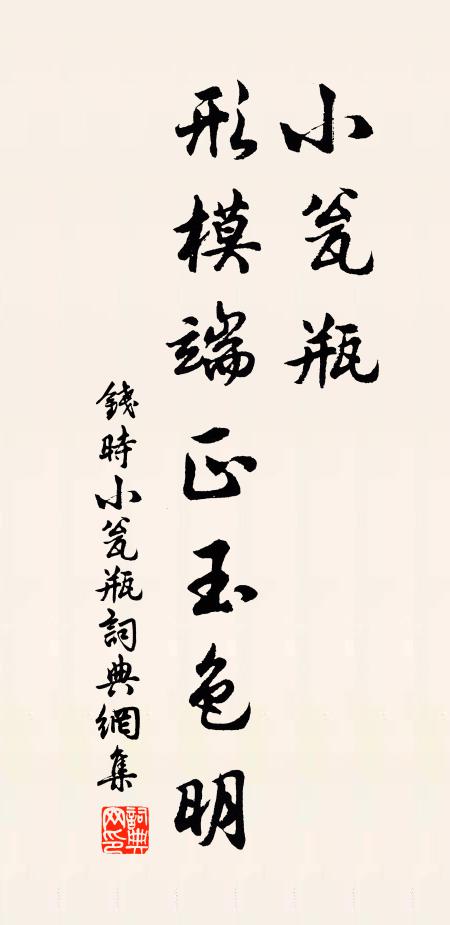 小瓮瓶
形模端正玉色明
錢時小瓮瓶詞典網集
詞典
网印